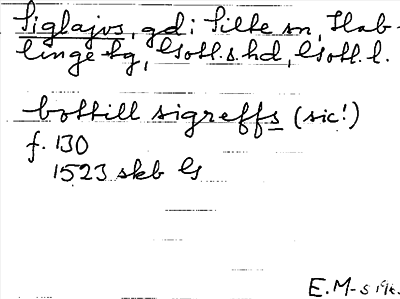 Siglajvs, gd i Silte sn, Hab-
linge tg, Gotl. s. hd, Gotl. l.
bottill sigreffs (sic!)
f. 130
1523 skb G
E.M-s